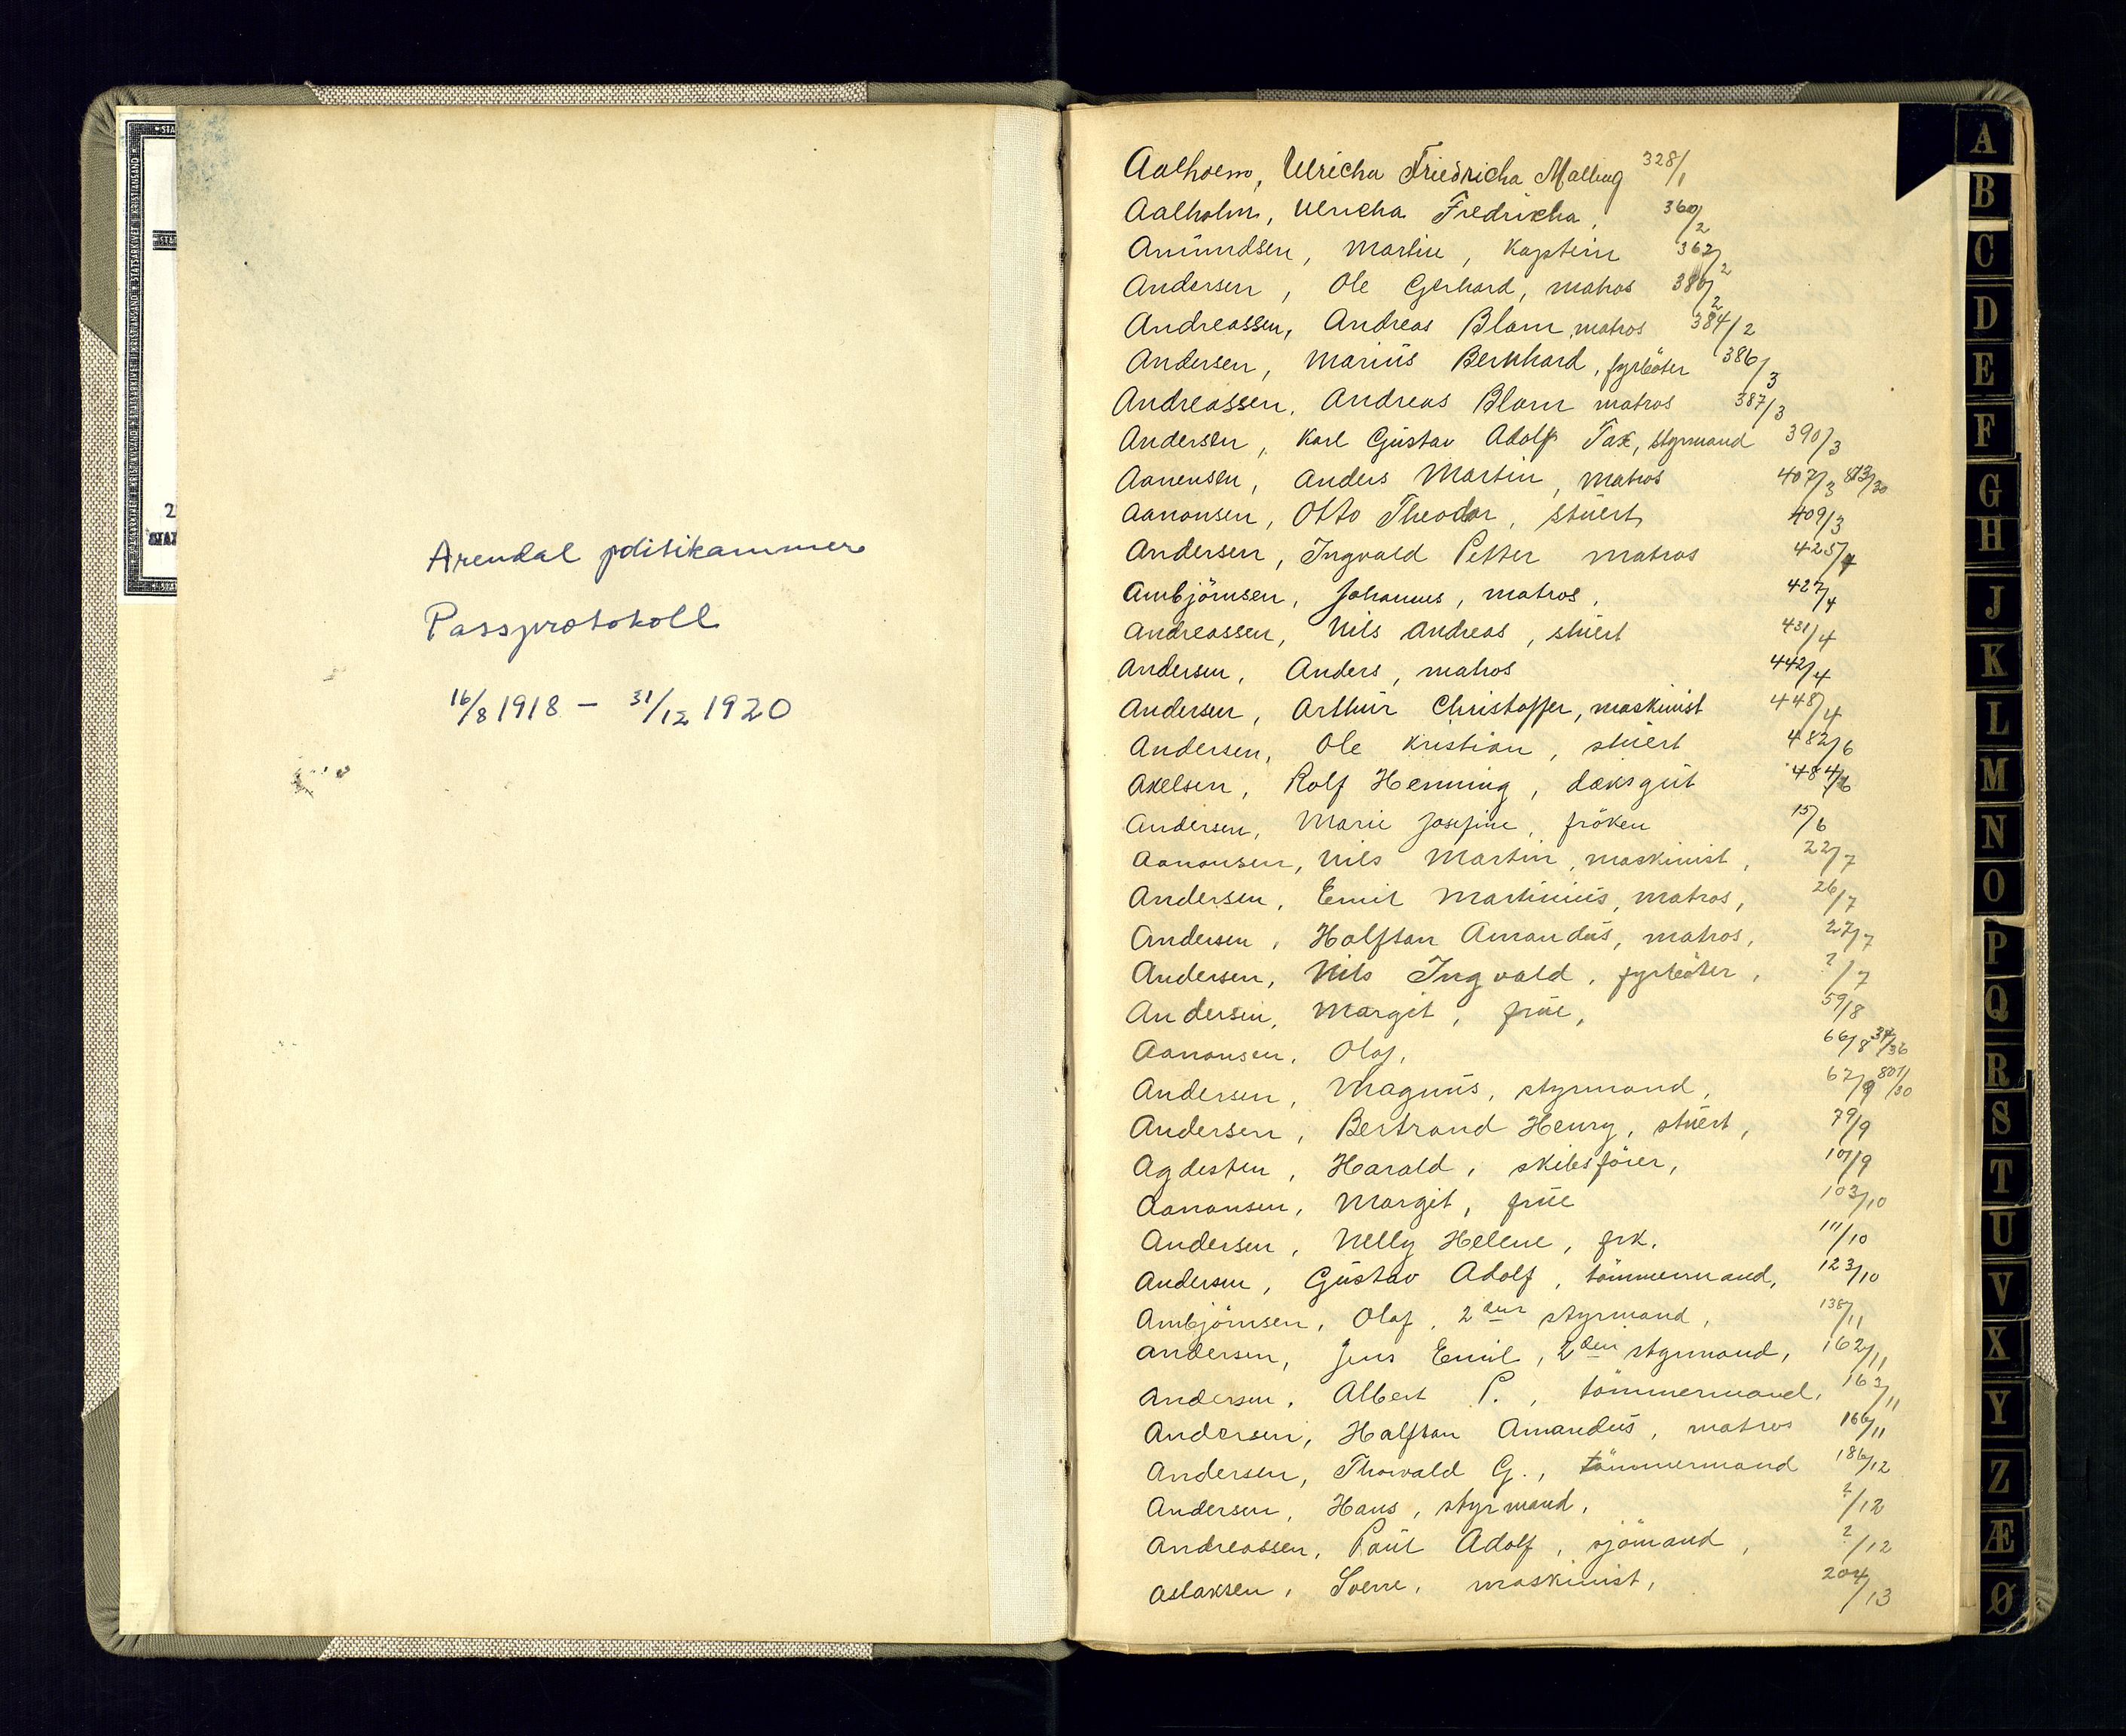 Arendal politikammer
Passprotokoll
16/8 1918 – 31/12 1920
Aalholm, Ulricha Friedricha Malling 328/1
Aalholm, Ulricha Fredricha, 360/2
Amundsen, Martin, Kaptein 362/2
Andersen, Ole Gerhard, matros 380/2
Andreassen, Andreas Blom, matros 384/2
Andersen, Marius Bernhard, fyrböter 386/3
Andreassen, Andreas Blom matros 387/3
Andersen, Karl Gustav Adolf Tax, styrmand 390/3
Aanensen, Anders Martin, matros 407/3 813/30
Aanonsen, Otto Theodor, stuert 409/3
Andersen, Ingvald Petter matros 425/4
Ambjörnsen, Johannes, matros, 427/4
Andreassen, Nils Andreas, stuert 431/4
Andersen, Anders, matros 442/4
Andersen, Arthur Christoffer, maskinist 448/4
Andersen, Ole Kristian, stuert 482/6
Axelsen, Rolf Henning, deksgut 484/6
Andersen, Marie Josefine, fröken 15/6
Aanonsen, Nils Martin, maskinist, 22/7
Andersen, Emil Martinius, matros, 26/7
Andersen, Halftan Amandus, matros, 27/7
Andersen, Nils Ingvald, fyrböter, ?/7
Andersen, Margit, frue, 59/8
Aanonsen, Olaf, 66/8 34/36
Andersen, Magnus, styrmand, 67/9 801/30
Andersen, Bertrand Henry, stuert, 79/9
Agdesten, Harald, skibsförer, 101/9
Aanonsen, Margit, frue 103/10
Andersen, Nelly Helene, frk. 111/10
Andersen, Gustav Adolf, tömmermand, 123/10
Ambjörnsen, Olaf, 2den styrmand, 138/11
Andersen, Jens Emil, 2den styrmand, 162/11
Andersen, Albert P., tömmermand, 163/11
Andersen, Halftan Amandus, matros 166/11
Andersen, Thorvald G., tömmermand 186/12
Andersen, Hans, styrmand, ?/12
Andreassen, Paul Adolf, sjömand, ?/12
Aslaksen, Sverre, maskinist, 204/13
A
B
C
D
E
F
G
H
J
K
L
M
N
O
P
Q
R
S
T
U
V
X
Y
Z
Æ
Ø